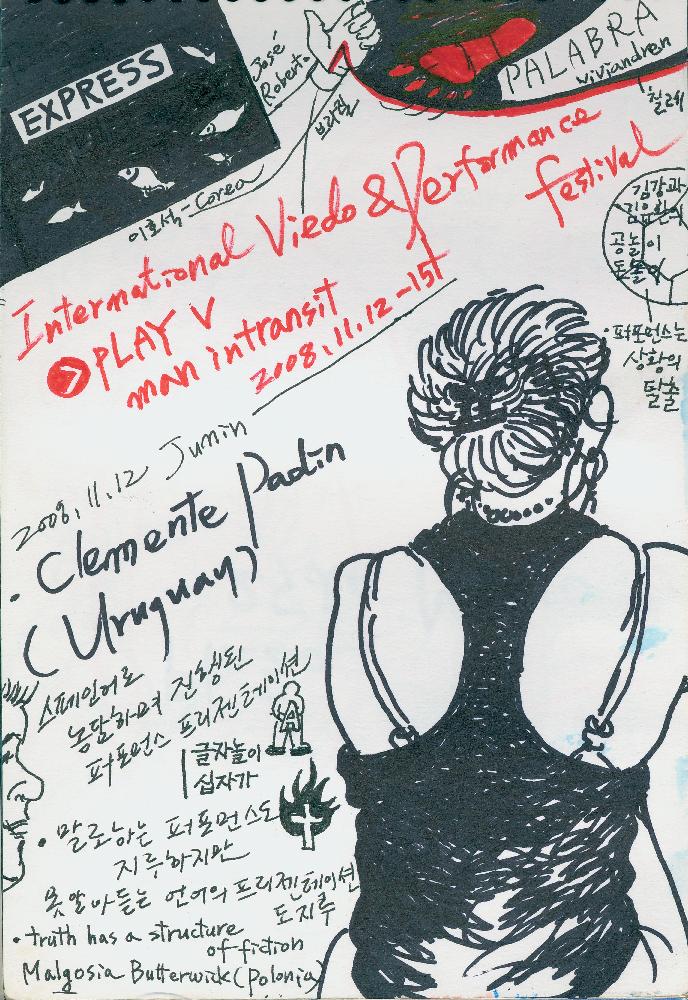 EXPRESS
José
Robert.
브라질
PALABRA
Viviandren
칠레
이호석-Corea
International Viedo & Performance
festival
PLAY V
man intransit
2008.11.12-15t
김강과
김윤환의
공놀이
돈놀이
·퍼포먼스는
상황의
탈출
2008.11.12 Junin
·Clemente Padin
(Uruguay)
스페인어로
농담하며 진행된
퍼포먼스 프리젠테이션
글자놀이
십자가
·말로하는 퍼포먼스도
지루하지만
못알아듣는 언어의 프리젠테이션
도지루
·truth has a structure
of fiction
Malgosia Butterwick (Polonia)